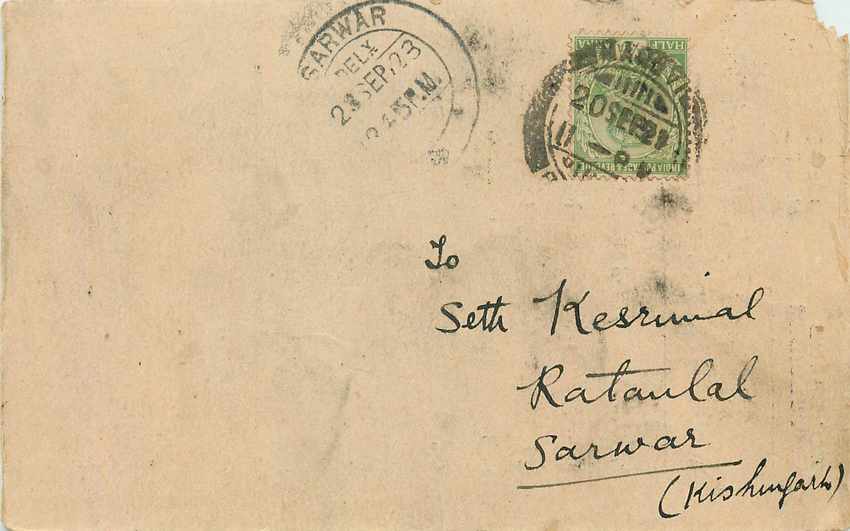 SARWAR
DELY
23 SEP. 23
P.M.
HALF
20 SEP 2
11
INDIA POSTAGE & REVENUE
To
Seth Kesrimal
Ratanlal
Sarwar
(Kishengarh)